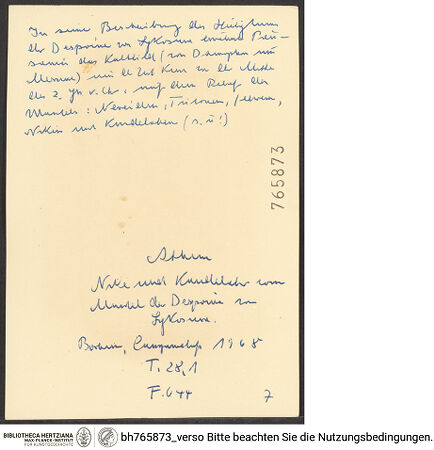 In seiner Beschreibung des Heiligtums
der Despoina von Lykosura erwähnt Pau-
sanias das Kultbild (von Damophon aus
Messene)
des 2. Jh v. Chr. auf dem Relief des
Mantels: Nereiden, Tritonen,
Niken und Kandelaber (s. u!)
765873
Athen
Nike und Kandelaber vom
Mantel der Despoina von
Lykosura.
1968
T. 28,1
F. 644
7
BIBLIOTHECA HERTZIANA
MAX-PLANCK-INSTITUT
FÜR KUNSTGESCHICHTE
bh765873_verso Bitte beachten Sie die Nutzungsbedingungen.